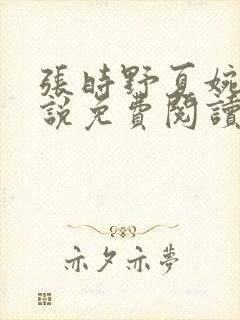 張時野夏婉
說免費閱讀
亦夕亦夢